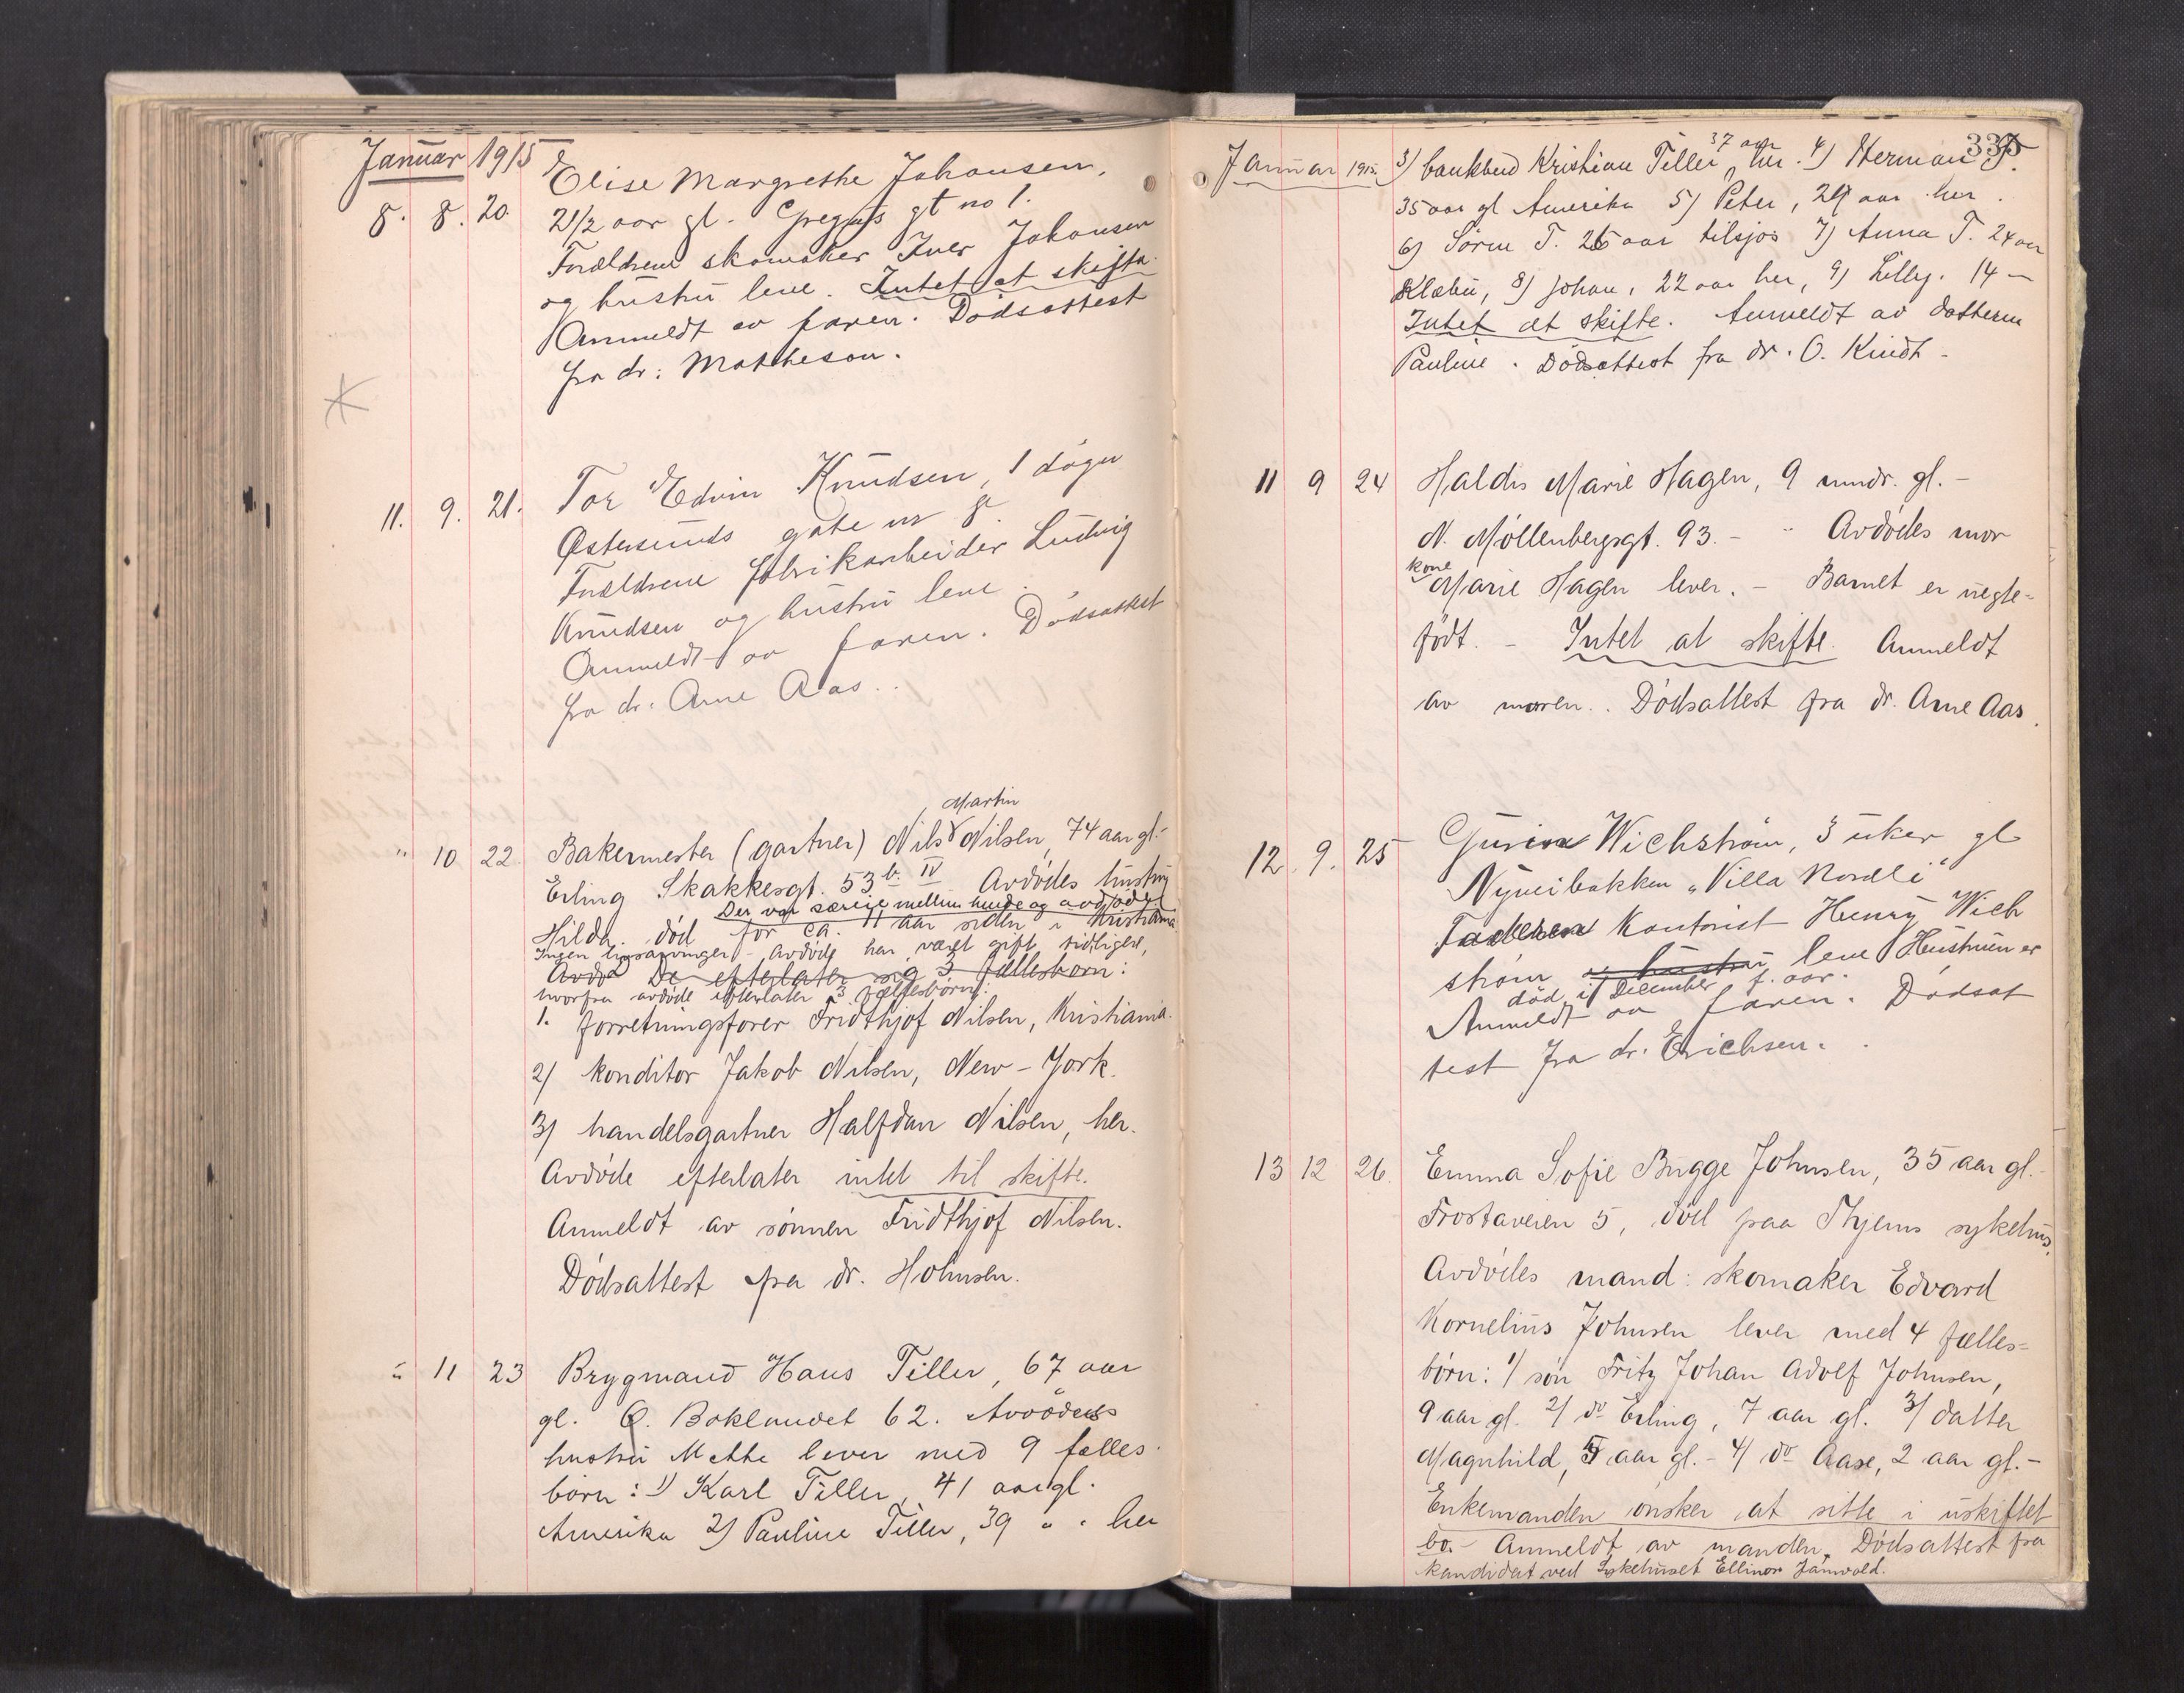 Januar 1915
8. 8. 20. Elise Margrethe Johansen,
2 1/2 aar gl. Gregus gt no 1.
Forældrene skomaker Iver Johansen
og hustru leve. Intet at skifte.
Anmeldt av faren. Dødsattest
fra dr: Matheson.
11. 9. 21. Tor Edvin Knudsen, 1 døgn
Østersunds gate nr
Forældrene fabrikarbeider Ludvig
Knudsen og hustru leve.
Anmeldt av faren. Dødsattest
fra dr. Arne Aas.
Martin
" 10 22. Bakermester (gartner) Nils Nilsen, 74 aar gl.-
Erling Skakkesgt. 53 b. IV Avdødes hustru
Der var særeie mellem hende og avdøde
Hilda. død for ca. 11 aar siden i Kristiania.
Ingen livsarvinger - Avdøde har været gift tidligere,
Avdø De efterlater sig 3 fællesbørn:
hvorfra avdøde efterlater 3 fællesbørn:
1. forretningsfører Fridthjof Nilsen, Kristiania.
2) konditor Jakob Nilsen, New-York.
3) handelsgartner Halfdan Nilsen, her.
Avdøde efterlater intet til skifte.
Anmeldt av sønnen Fridthjof Nilsen.
Dødsattest fra dr. Holmsen.
" 11 23 Brygmand Hans Tiller, 67 aar
gl. Ø. Baklandet 62. Avdødes
hustru Mette lever med 9 fælles
børn: 1) Karl Tiller, 41 aar gl.
Amerika 2) Pauline Tiller, 39 " " her
335
Januar 1915.
37 aar
3) bankbud Kristian Tiller, her. 4) Herman T.
35 aar gl Amerika 5) Peter, 29 aar her.
6) Søren T. 26 aar tilsjøs 7) Anna T. 24 aar
Klæbu, 8) Johan, 22 aar her, 9) Lilly. 14 -
Intet at skifte. Anmeldt av datteren
Pauline. Dødsattest fra dr. O. Kindt -
11 9 24 Haldis Marie Hagen, 9 mndr. gl. -
N. Møllenbergsgt. 93. - Avdødes mor
kone
Marie Hagen lever. - Barnet er uegte-
født. - Intet at skifte. Anmeldt
av moren. Dødsattest fra dr. Arne Aas.
12. 9. 25 Wichstrøm, 3 uker gl
Nyveibakken "Villa Nordli"
Faderen Kontorist Henry Wich
strøm og hustru leve Hustruen er
død i December f. aar.
Anmeldt av faren. Dødsat
test fra dr. Erichsen.
13 12 26. Emma Sofie Bugge Johnsen, 35 aar gl.
Frostaveien 5, død paa Thjems sykehus.
Avdødes mand: skomaker Edvard
Kornelius Johnsen lever med 4 fælles-
børn: 1) søn Fritz Johan Adolf Johnsen,
9 aar gl. 2) do Erling, 7 aar gl. 3) datter
Magnhild, 5 aar gl. - 4) do Aase, 2 aar gl. -
Enkemanden ønsker at sitte i uskiftet
bo. - Anmeldt av manden. Dødsattest fra
kandidat ved Sykehuset Ellinor Jamvold.